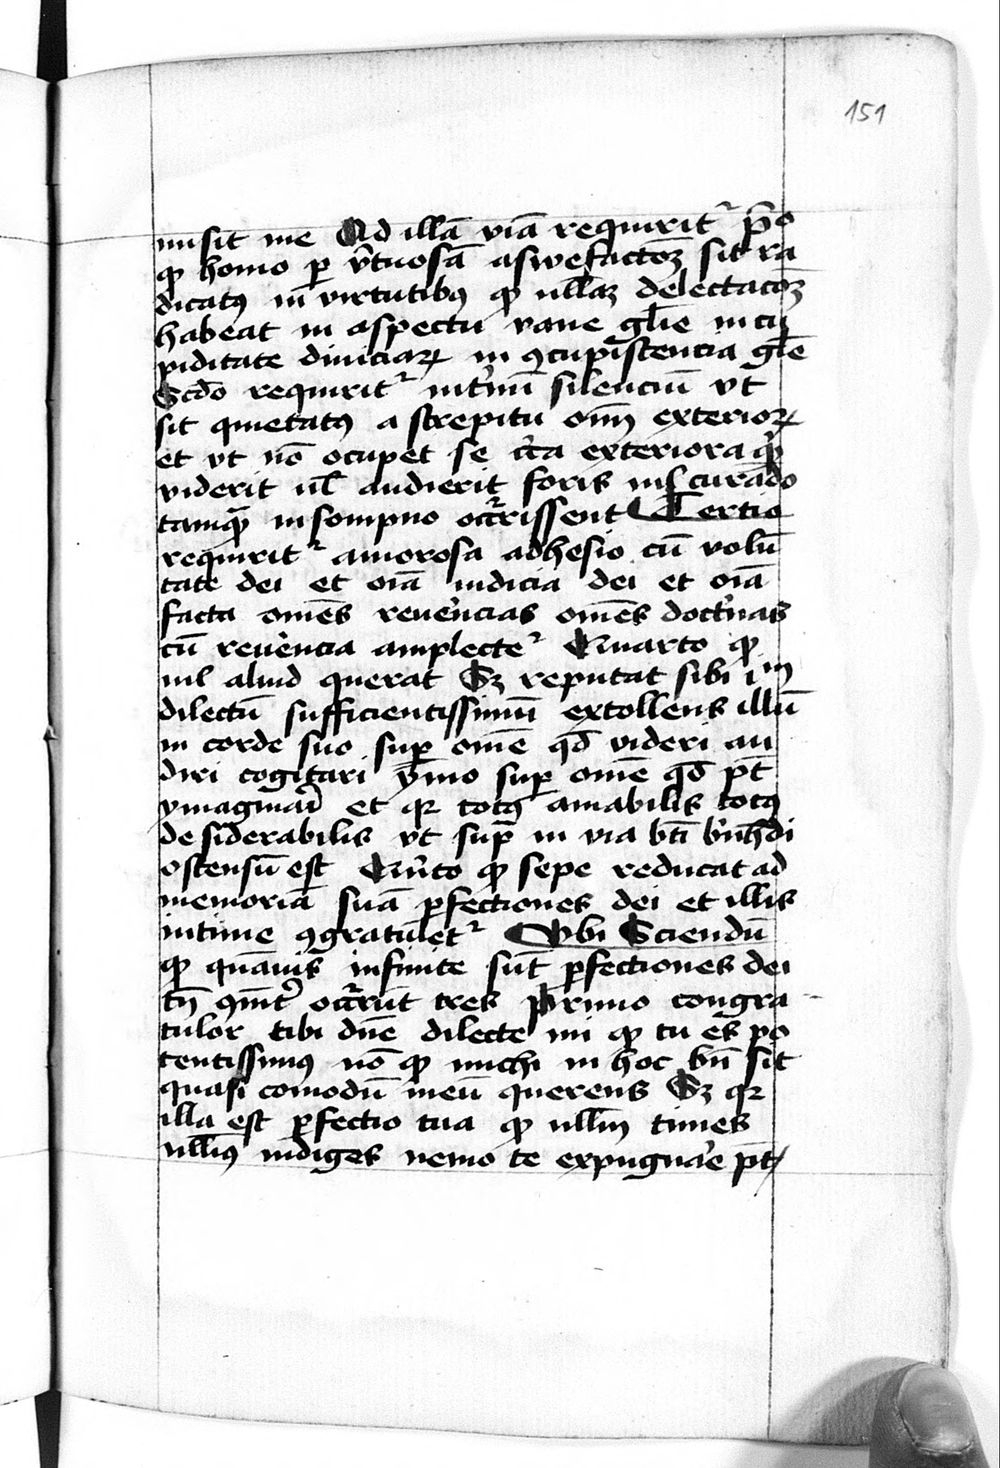 151
misit me Ad illā viā requirit᷑ p̄o
ꝙ homo ꝑ v̄tuosā aswefactōꝫ sit ra
dicatꝰ in virtutibꝰ ꝙ nullaꝫ delectacōꝫ
habeat in aspectu vane gl̄ie in cu
piditate diuiciaꝝ in ꝯcupiscencia gl̄e
Scd̄o requirit᷑ int̓nū silenciū vt
sit quietatꝰ a strepitu om̄ exterioꝝ
et vt nō ocupet se cc̓a exteriora q̄
viderit ul̄ audierit foris nil curādo
tamqā in sompno occ̓rissent Tertio
requirit᷑ amorosa adhesio cū volū
tate dei et oīa iudicia dei et oīa
facta om̄es reuēncias om̄es doct̓nas
cū reuēncia amplecte᷑ Quarto ꝙ
nil aliud querat Sꝫ reputat sibi
dilectū sufficientissimū extollens illū
in corde suo suꝑ om̄e qd̄ videri au
diri cogitari ymo suꝑ om̄e qd̄ pt̄
ymaginari et qꝛ totꝰ amabilis totꝰ
desiderabilis vt sup̄ in via bt̄i bn̓hdi
ostensū est Qūito ꝙ sepe reducat ad
memoriā suā ꝑfectiones dei et illis
intime ꝯgratulet᷑ Vbi Sciendū
ꝙ quāuis infinite sūt ꝑfectiones dei
tn̄ ꝯmit̓ occ̓rūt tres Primo congra
tulor tibi dn̄e dilecte mi ꝙ tu es po
tentissimꝰ nō ꝙ michi in hoc bn̄ sit
quasi comodū meū querens Sꝫ qꝛ
illa est ꝑfectio tua ꝙ null̄m times
null̄iꝰ indiges nemo te expugnāe pt̄